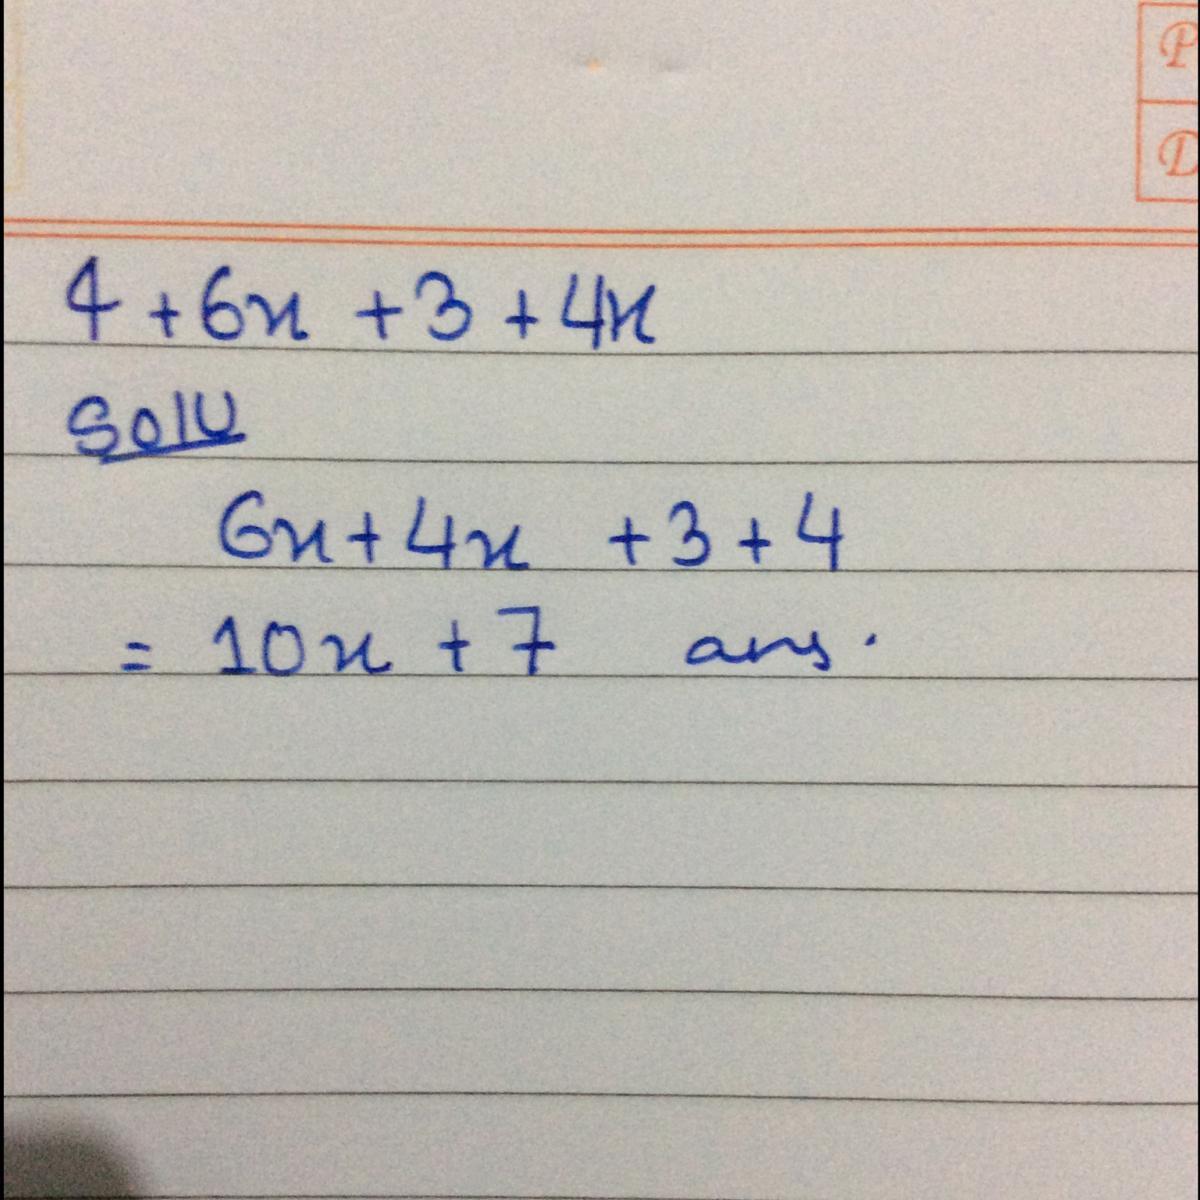 P
D
4 + 6x + 3 + 4x
Solu
6x + 4x + 3 + 4
= 10x + 7 ans.